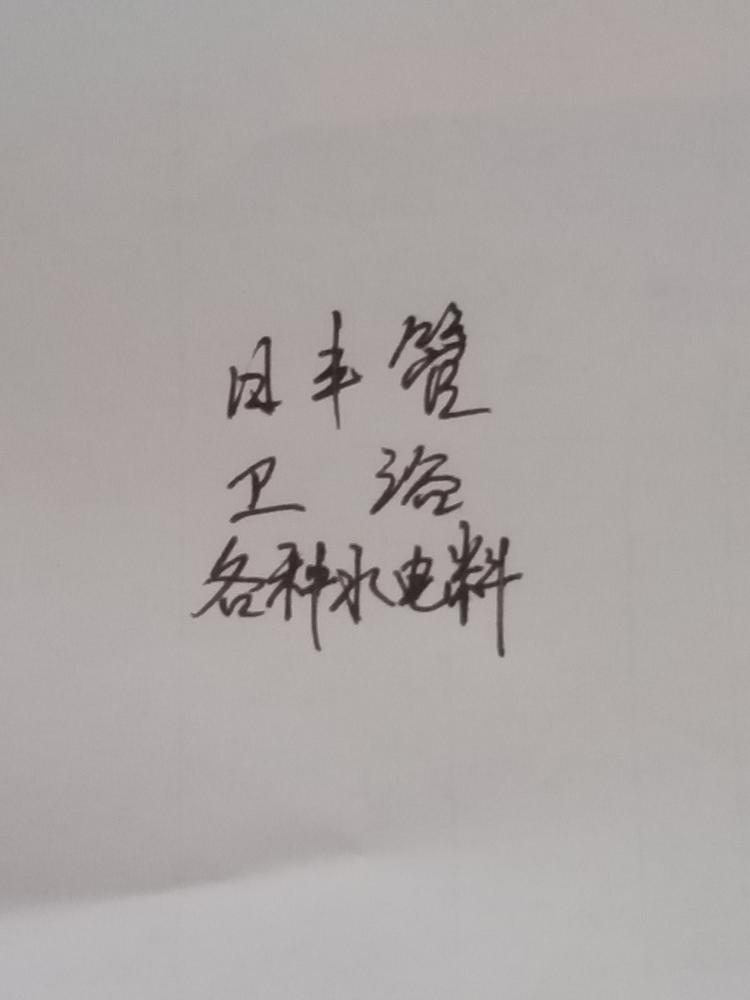 日丰管
卫浴
各种水电料